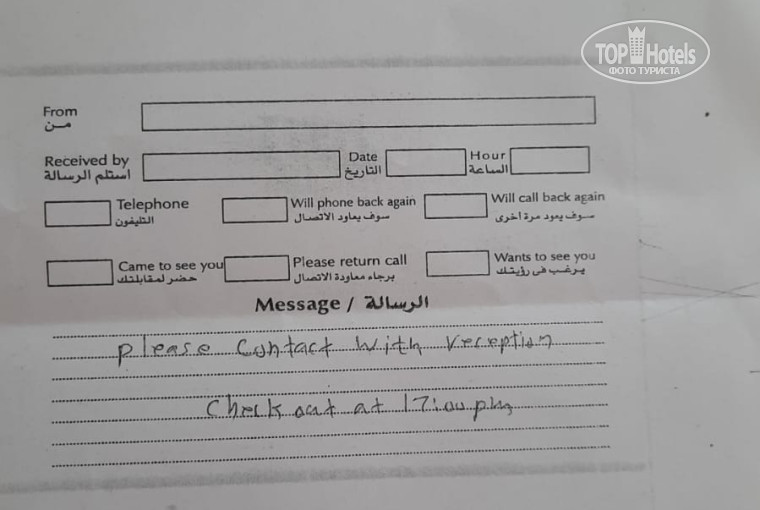 TOP Hotels
ФОТО ТУРИСТА
From
من
Received by
Date
Hour
استلم الرسالة
التاريخ
الساعة
Telephone
Will phone back again
Will call back again
التليفون
سوف يعاود الاتصال
سوف يعود مرة أخرى
Came to see you
Please return call
Wants to see you
حضر لمقابلتك
برجاء معاودة الاتصال
يرغب فى رؤيتك
Message / الرسالة
please contact with reception
Check out at 17:00 pm